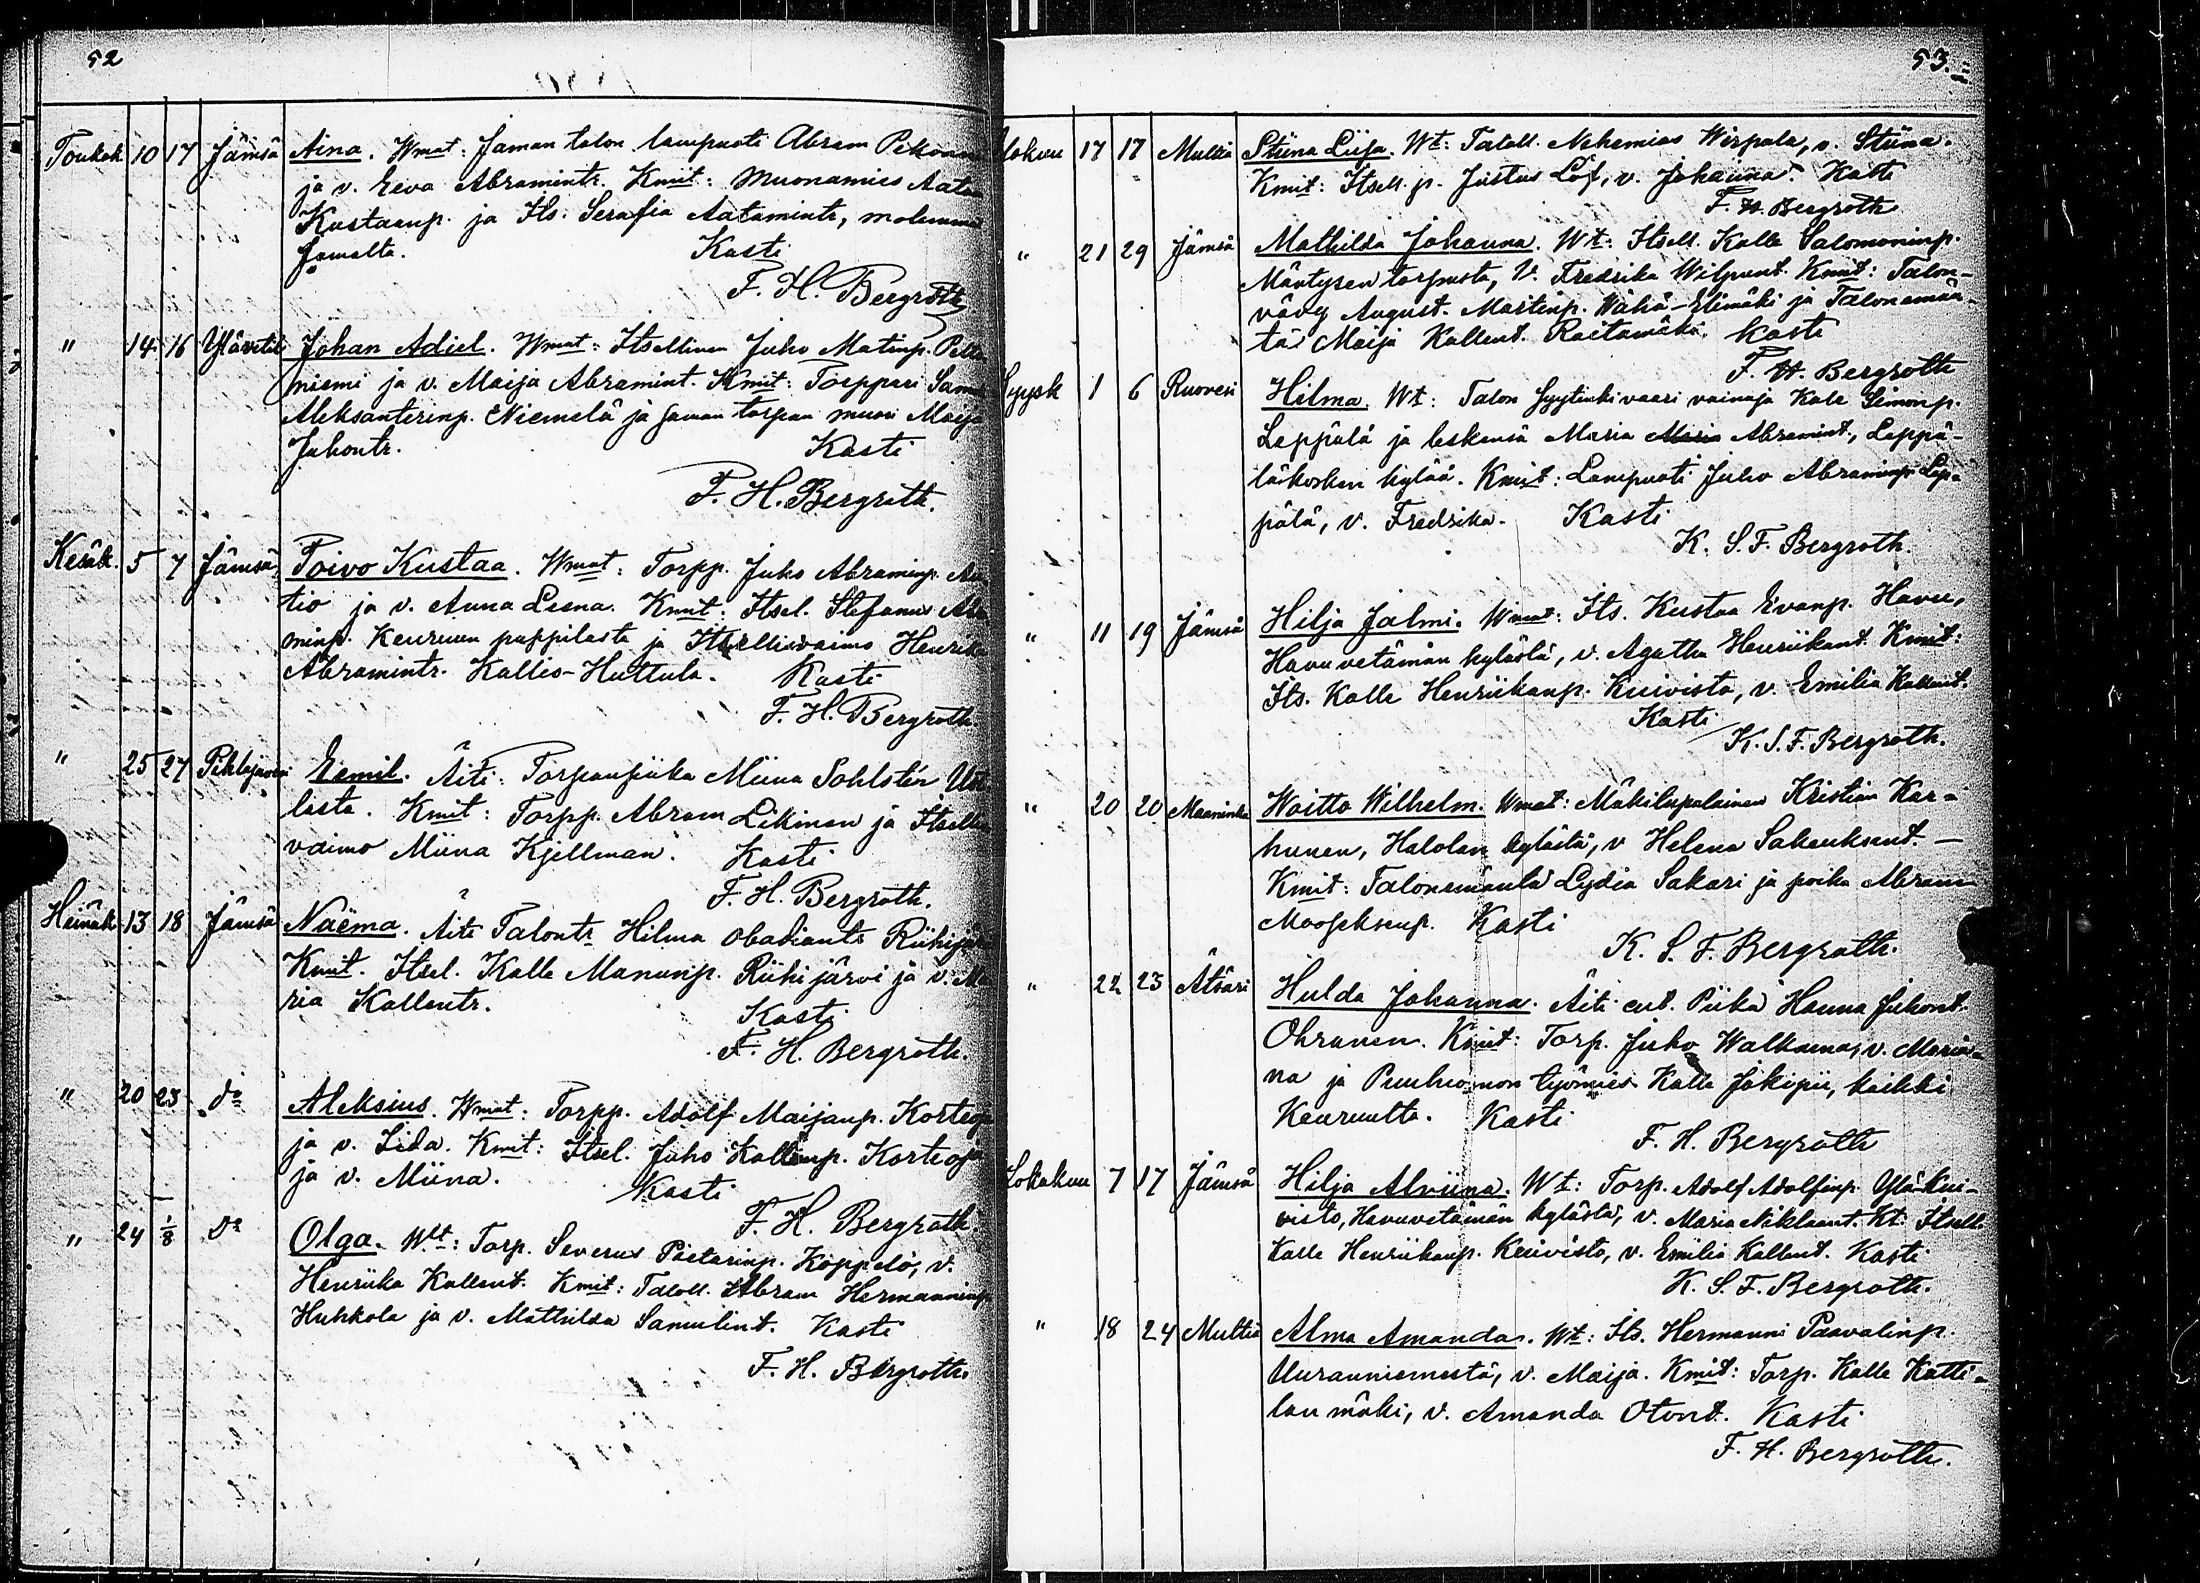 52
Toukok 10 17 Jämsä Aina. Wmat: Saman talon lampuoti Abram Pekonen
ja v. Eeva Abramintr. Kmit: Muonamies Aatu
Kustaanp. ja Its. Serafia Aatamintr, molemmat
samalta. Kasti
F. H. Bergroth
" 14 16 Johan Adiel. Wmat: Itsellinen Juho Matinp.
niemi ja v. Maija Abramint. Kmit: Torppari
Aleksanterinp. Niemelä ja saman torpan muori Maija
Juhontr. Kasti
F. H. Bergroth.
Kesäk. 5 7 Jämsä Toivo Kustaa. Wmat: Torpp. Juho Abraminp. Au
tio ja v. Anna Leena. Kmit. Itsel. Stefanus Abra
minp. Keuruun pappilasta ja Itsellisvaimo Henrika
Abramintr. Kallio-Huttula. Kasti
F. H. Bergroth.
" 25 27 Pihlajavesi Eemil. Äiti: Torpanpiika Miina Sohlstén
lasta. Kmit: Torpp. Abram Likinen ja Itsellis
vaimo Miina Kjellman. Kasti
F. H. Bergroth.
Heinäk 13 18 Jämsä Naëma. Äiti Talontr Hilma Obadiantr Riihijärvi
Kmit. Itsel. Kalle Manunp. Riihijärvi ja v. Ma
ria Kallentr. Kasti
F. H. Bergroth.
" 20 23 do Aleksius. Wmat: Torpp. Adolf Maijanp. Korteoja
ja v. Iida. Kmit: Itsel. Juho Kallenp. Korteoja
ja v. Miina. Kasti
F. H. Bergroth
" 24 1/8 do Olga. Wlt: Torp. Severus Pietarinp. Koppelo, v.
Henriika Kallent. Kmit: Taloll. Abram Hermanninp
Huhkola ja v. Mathilda Samulint. Kasti
F. H. Bergroth.
53.
Elokuu 17 17 Multia Stiina Liisa. Wt: Taloll. Nehemias Wirpala, v. Stiina.
Kmit: Itsell. p. Justus Löf, v. Johanna. Kasti
F. H. Bergroth
" 21 29 Jämsä Mathilda Johanna. Wt: Itsell. Kalle Salomoninp.
Mäntysen torpasta, V. Fredrika Wilpunt. Kmit: Talon-
vävy August. Martinp. Wähä-Elimäki ja Talonemän-
tä Maija Kallent. Raitamäki. Kasti
F. H. Bergroth
Syysk 1 6 Ruovesi Hilma. Wt: Talon syytinkivaari vainaja Kale Simonp.
Leppälä ja leskensä Maria Maria Abramint, Leppä-
läkosken kylää. Kmit: Lampuoti Juho Abraminp. Lep-
pälä, v. Fredrika. Kasti
K. S. F. Bergroth.
" 11 19 Jämsä Hilja Salmi. Wmat: Its. Kustaa Evanp. Havu,
Havuvetämän kylästä, v. Agatha Henriikant. Kmit:
Its. Kalle Henriikanp. Kuivisto, v. Emilia Kallent.
Kasti
K. S. F. Bergroth.
" 20 20 Maaninka Woitto Wilhelm. Wmat: Mäkitupalainen Kristian Kar-
hunen, Halolan kylästä, v Helena Sakeuksent. —
Kmit: Talonemäntä Lydia Sakari ja poika Abram
Mooseksenp. Kasti
K. S. F. Bergroth.
" 22 23 Ätsäri Hulda Johanna. Äiti ent. Piika Hanna Juhont.
Ohranen. Kmit: Torp. Juho Walkama, v. Maria-
na ja Puuhuonon työmies Kalle Jokipii, kaikki
Keuruulta. Kasti
F. H. Bergroth
Lokakuu 7 17 Jämsä Hilja Alviina. Wt: Torp. Adolf Adolfinp. Yläkui-
visto, Havuvetämän kylästä, v. Maria Niklaant. Kt: Itsell.
Kalle Henriikanp. Kuivisto, v. Emilia Kallent. Kasti
K. S. F. Bergroth.
" 18 24 Multia Alma Amanda. Wt: Its. Hermanni Paavalinp.
Uuranniemestä, v. Maija. Kmit: Torp. Kalle Katti-
lan mäki, v. Amanda Otont. Kasti
F. H. Bergroth.